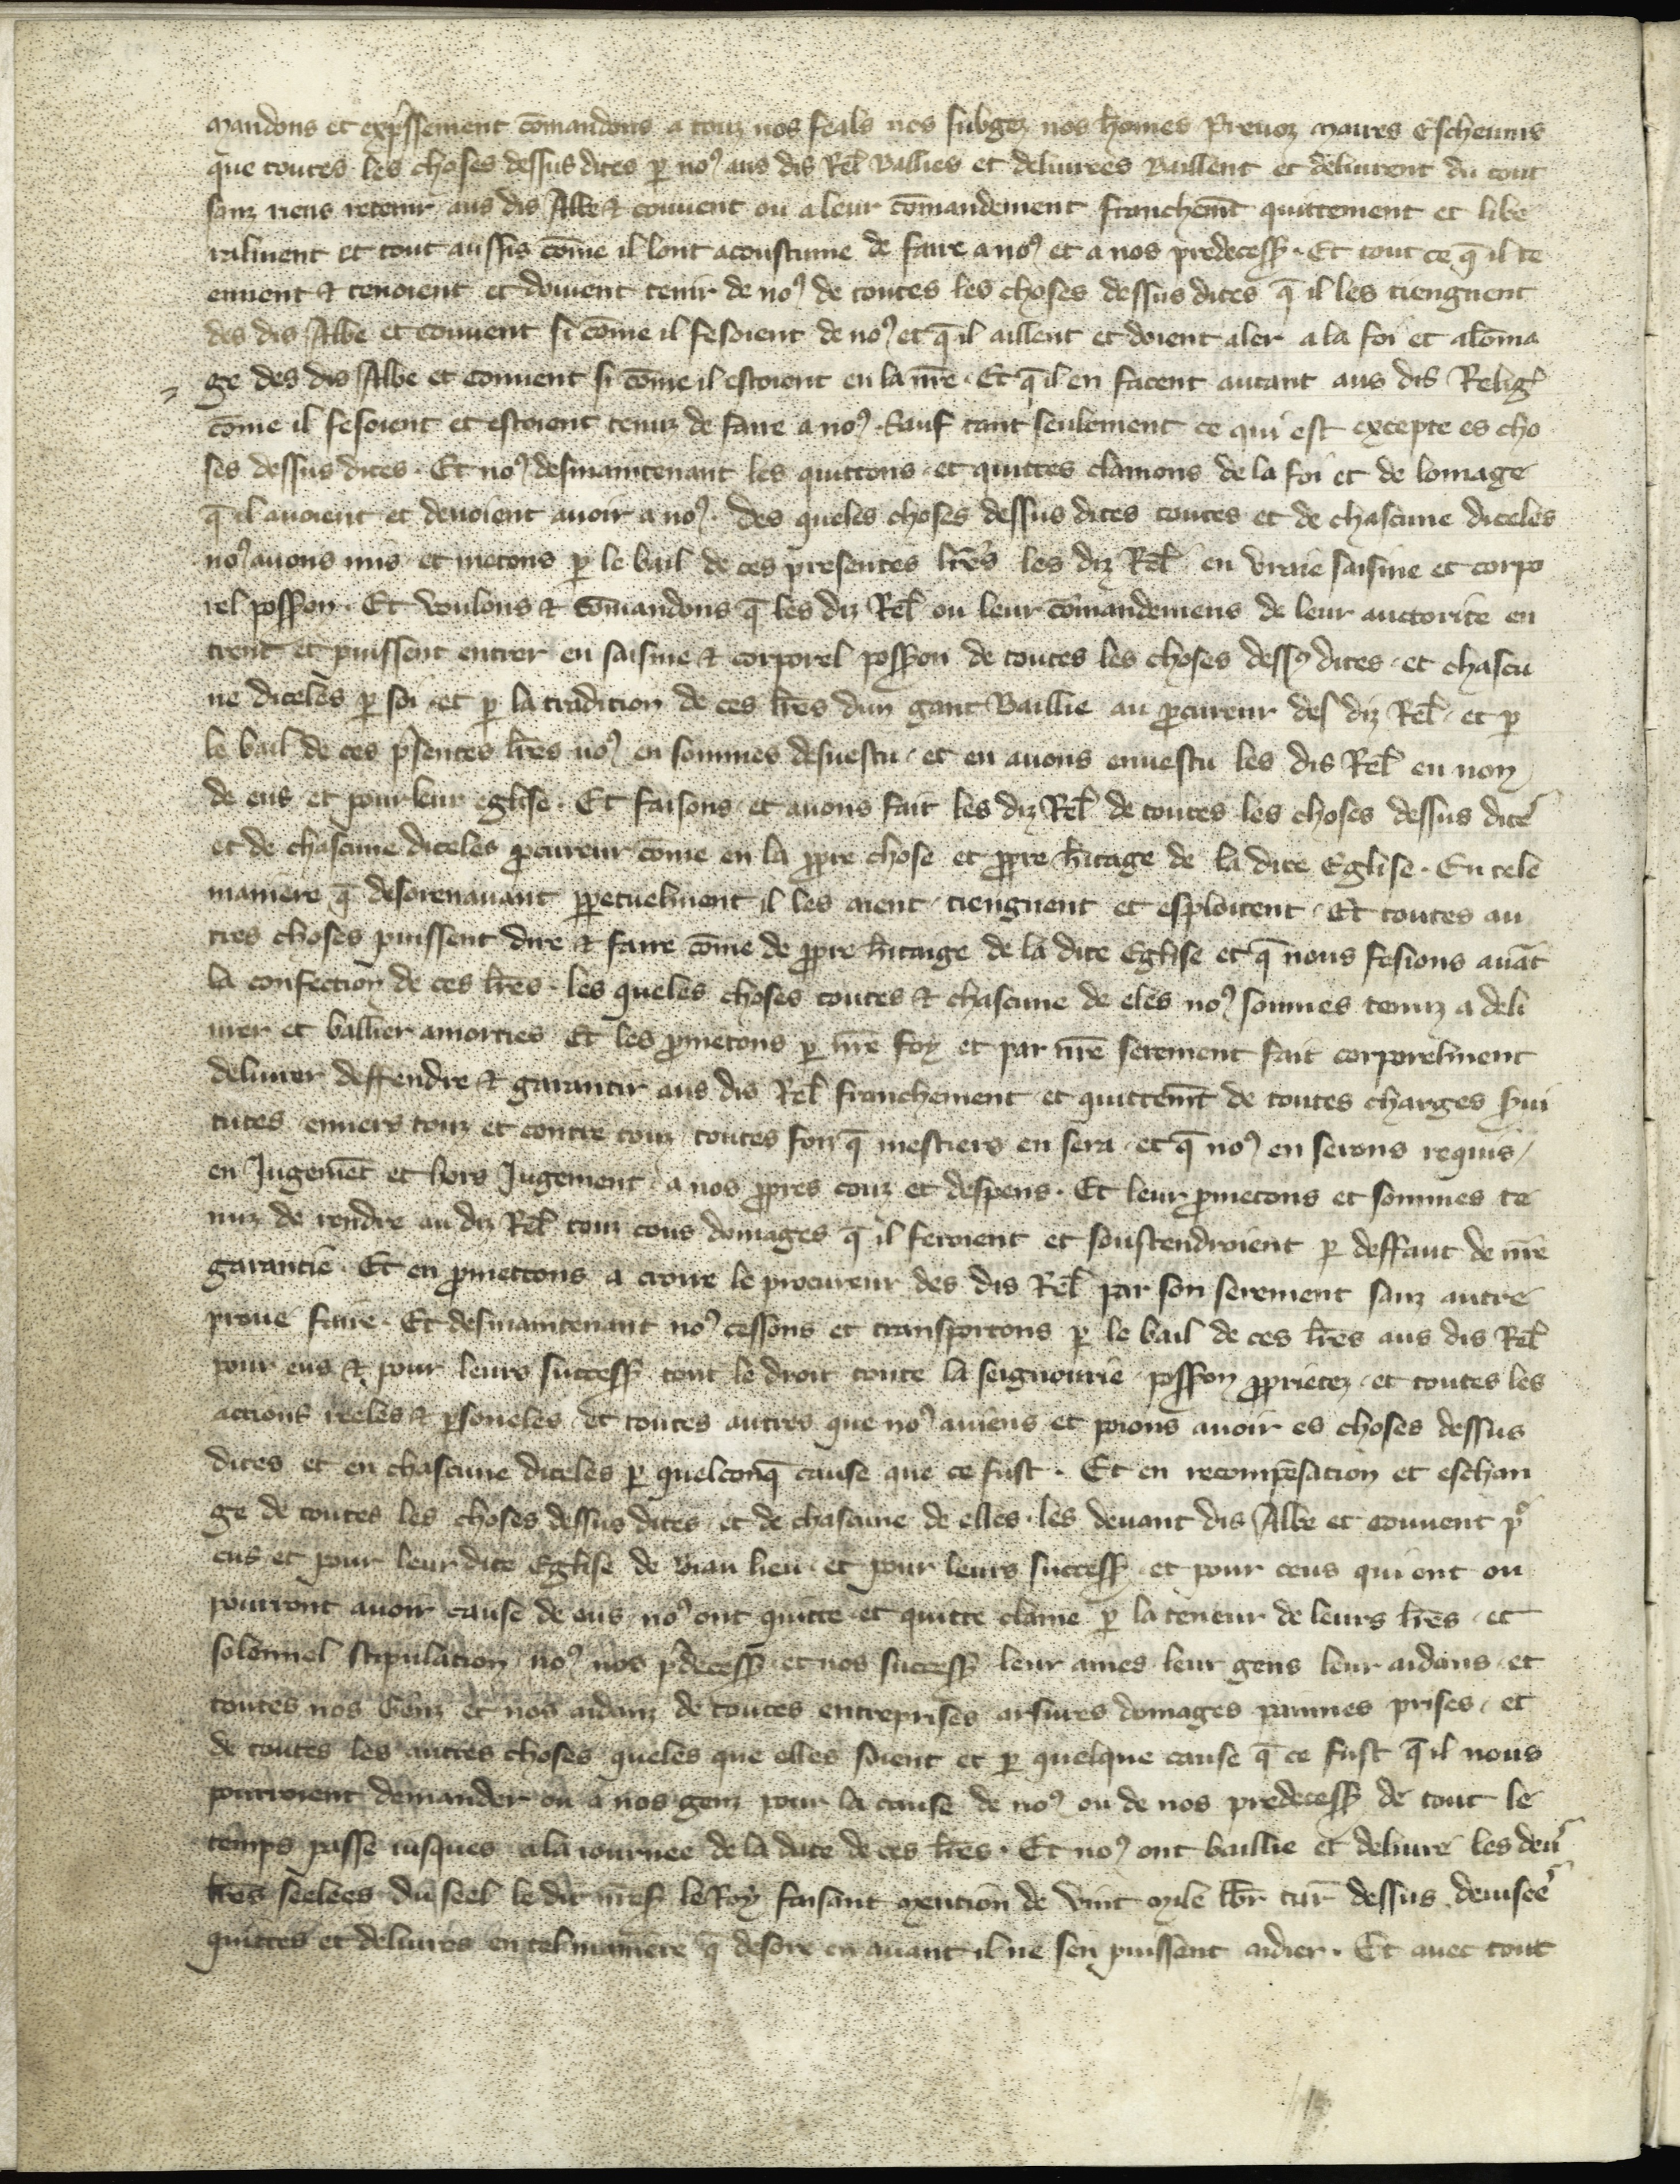 mandons et exp̄ssement cōmandons a touz nos feals nos subgez nos hōmes Preuoz maires Escheuins
que toutes les choses dessus dites ꝑ noꝰ aus dis Rel̄ Baillies et deliurees Baillent et deliurent du tout
sanz riens retenir aus dis Abbe ⁊ couuent ou a leur cōmandement franchem̄t quittement et libe
ralment et tout aussis cōme il lont acoustume de faire a noꝰ et a nos predecess̄ . Et tout ce q̄ il te
euuent ⁊ tenoient et doiuent tenir de noꝰ de toutes les choses dessus dites q̄ il les tiengnent
des dis Abbe et couuent si cōme il fesoient de noꝰ et q̄ il aillent et doient aler a la foi et alōma
ge des dis Abbe et couuent si cōme il estoient en la nr̄e . Et q̄ il en facent autant aus dis Reliḡ
cōme il fesoient et estoient tenuz de faire a noꝰ . Sauf tant seulement ce qui est excepte es cho
ses dessus dites . Et noꝰ desmaintenant les quittons et quittes clamons de la foi et de lomage
q̄ il auoient et deuoient auoir a noꝰ . Des queles choses dessus dites toutes et de chascune diceles
noꝰ auons mis et metons ꝑ le bail de ces presentes lr̄es les diz Rel̄ en vraie saisine et corpo
rel poss̄on . Et voulons ⁊ cōmandons q̄ les diz Rel̄ ou leur cōmandemens de leur auctorite en
trent et puissent entrer en saisine ⁊ corporel poss̄on de toutes les choses dessꝰ dites . et chascu
ne diceles ꝑ soi . et ꝑ la tradition de ces lr̄es dun gant Baillie au ꝓcureur des diz Rel̄ . et ꝑ
le bail de ces p̄sentes lr̄es noꝰ en sommes desuestu . et en auons enuestu les dis Rel̄ en non
de eus et pour leur eglise . Et faisons et auons fait les diz Rel̄ de toutes les choses dessus dites
et de chascune diceles ꝓcureur cōme en la ꝓpre chose et ꝓpre h̄itage de la dite Eglise . En tele
maniere q̄ desorenauant ꝑpetuelment il les aient tiengnent et esploitent . Et toutes au
tres choses puissent dire ⁊ faire cōme de ꝓpre h̄itaige de la dite Eglise et q̄ nous fesions auāt
la confection de ces lr̄es . les queles choses toutes ⁊ chascune de eles noꝰ sommes tenuz a deli
urer et ballier amorties Et les ꝓmetons ꝑ nr̄e foy et par nr̄e serement fait corporelment
deliurer deffendre ⁊ garantir aus dis Rel̄ franchement et quittem̄t de toutes charges s̄ui
tutes enuers touz et contre touz toutes foiz q̄ mestiers en sera . et q̄ noꝰ en serons requis /
en Jugemēt et hors Jugement . a nos ꝓpres couz et despens . Et leur ꝓmetons et sommes te
nuz de rendre au diz Rel̄ touz cous domages q̄ il feroient et soustendroient ꝑ deffaut de nr̄e
garantie . Et en ꝓmettons a croire le procureur des dis Rel̄ par son serement sanz autre
proue faire . Et desmaintenant noꝰ cessons et transportons ꝑ le bail de ces lr̄es aus dis Rel̄
pour eus ⁊ pour leurs success̄ tout le droit toute la seignourie poss̄on ꝓprietez . et toutes les
actions reeles ⁊ ꝑsoneles . et toutes autres que noꝰ auiens et poions auoir es choses dessus
dites et en chascune diceles ꝑ quelconq̄ cause que ce fust . Et en recompēsation et eschan
ge de toutes les choses dessus dites . et de chascune de elles . les deuant dis Abbe et couuent pͦ
eus et pour leur dite Eglise de Biau lieu . et pour leurs success̄ . et pour ceus qui ont ou
pourront auoir cause de eus noꝰ ont quitte et quitte clame ꝑ la teneur de leurs lr̄es . et
solennel stipulation noꝰ nos p̄decess̄ et nos success̄ leur amés leur gens leur aidans . et
toutes nos Genz et nos aidanz de toutes entreprises arsures domages painnes prises . et
de toutes les autres choses queles que elles soient et ꝑ quelque cause q̄ ce fust q̄ il nous
pourroient demander ou a nos genz pour la cause de noꝰ ou de nos predecess̄ de tout le
temps passe iusques a la iournee de la date de ces lr̄es . Et noꝰ ont baillie et deliure les deus
lr̄es seelees du seel le dit mess̄ le Roy faisant mention de vint mile lb̄r tur̄ dessus deuisees
quittes et deliures en tel maniere q̄ desore en auant il ne sen puissent aidier . Et auec tout